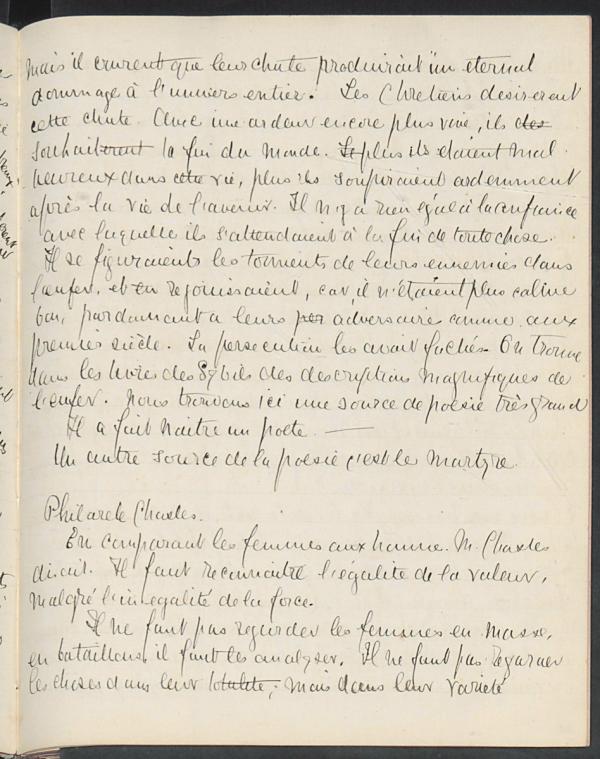 mais il crurent que leur chute produirait un eternel
dommage à l'univers entier. Les Chretiens desirerent
cette chute. Avec une ardeur encore plus vive, ils des
souhaiterent la fin du monde. Le plus ils etaient mal
heureux dans cette vie, plus ils soupiraient ardemment
après la vie de l'avenir. Il n'y a rien egal à la confiance
avec laquelle ils s'attendaient à la fin de toute chose.
Il se figuraients les torments de leurs ennemies dans
l'enfer, et en rejouissaient, car il n'étaient plus calme
bon, pardonnant a leurs per adversaire comme aux
premier siècle. La persecution les avait fachés. On trouve
dans les livres des Sybils des descriptions magnifiques de
l'enfer. Nous trouvons ici une source de poésie très grand
Il a fait naitre un poete. —
Un autre source de la poesie c'est le Martyre.
Philarete Chasles.
En comparant les femmes aux homme. M. Chasles
disait. Il faut reconnaitre l'égalité de la valeur,
malgré l'inegalité de la force.
Il ne faut pas regarder les femmes en masse,
en bataillons, il faut les analyser. Il ne faut pas regarder
les choses dans leur totalité; mais dans leur varieté